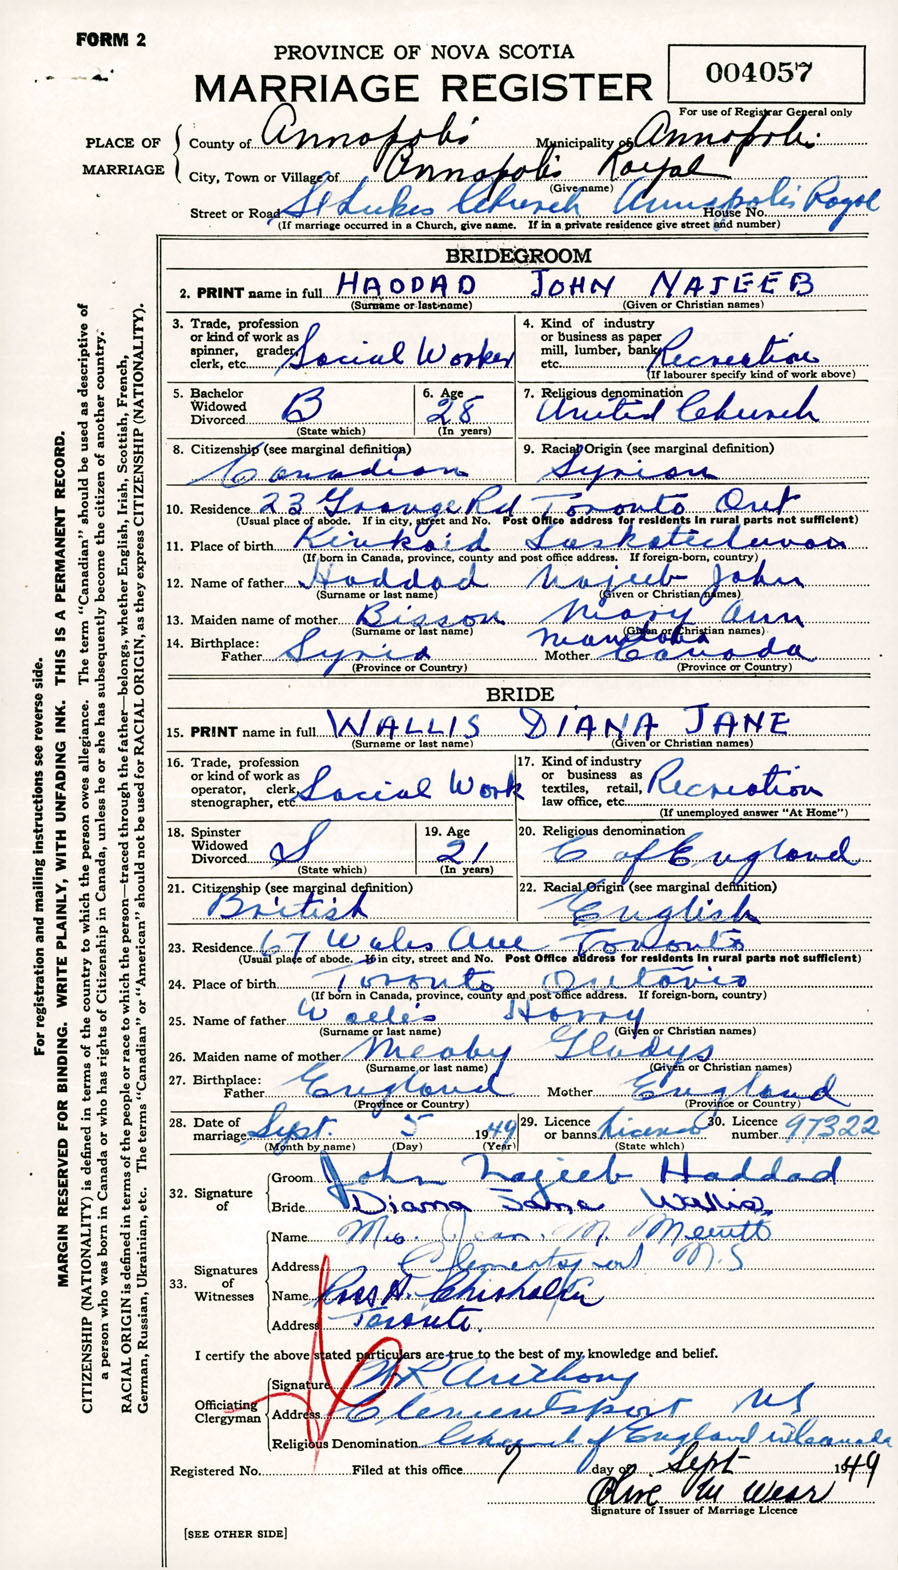 FORM 2
PROVINCE OF NOVA SCOTIA
MARRIAGE REGISTER
004057
For use of Registrar General only
PLACE OF MARRIAGE
County of Annapolis Municipality of Annapolis
City, Town or Village of Annapolis Royal
(Give name)
Street or Road St Lukes Church Annapolis Royal House No.
(If marriage occurred in a Church, give name. If in a private residence give street and number)
BRIDEGROOM
2. PRINT name in full HADDAD JOHN NAJEEB
(Surname or last name) (Given or Christian names)
3. Trade, profession or kind of work as spinner, grader, clerk, etc. Social Worker
4. Kind of industry or business as paper mill, lumber, bank, etc. Recreation
(If labourer specify kind of work above)
5. Bachelor Widowed Divorced B
(State which)
6. Age 28
(In years)
7. Religious denomination United Church
8. Citizenship (see marginal definition) Canadian
9. Racial Origin (see marginal definition) Syrian
10. Residence 23 Grange Rd Toronto Ont
(Usual place of abode. If in city, street and No. Post Office address for residents in rural parts not sufficient)
11. Place of birth Kinkaid Saskatchewan
(If born in Canada, province, county and post office address. If foreign-born, country)
12. Name of father Haddad Najeeb John
(Surname or last name) (Given or Christian names)
13. Maiden name of mother Bisson Mary Ann
(Surname or last name) (Given or Christian names)
14. Birthplace: Father Syria Mother Manitoba Canada
(Province or Country) (Province or Country)
BRIDE
15. PRINT name in full WALLIS DIANA JANE
(Surname or last name) (Given or Christian names)
16. Trade, profession or kind of work as operator, clerk, stenographer, etc. Social Work
17. Kind of industry or business as textiles, retail, law office, etc. Recreation
(If unemployed answer "At Home")
18. Spinster Widowed Divorced S
(State which)
19. Age 21
(In years)
20. Religious denomination C of England
21. Citizenship (see marginal definition) British
22. Racial Origin (see marginal definition) English
23. Residence 67 Wales Ave Toronto
(Usual place of abode. If in city, street and No. Post Office address for residents in rural parts not sufficient)
24. Place of birth Toronto Ontario
(If born in Canada, province, county and post office address. If foreign-born, country)
25. Name of father Wallis Harry
(Surname or last name) (Given or Christian names)
26. Maiden name of mother Gladys
(Surname or last name) (Given or Christian names)
27. Birthplace: Father England Mother England
(Province or Country) (Province or Country)
28. Date of marriage Sept. 5 1949
(Month by name) (Day) (Year)
29. Licence or banns License
(State which)
30. Licence number 97322
32. Signature of
Groom John Najeeb Haddad
Bride Diana Jane Wallis
33. Signatures of Witnesses
Name Mrs. Jean M. Merritt
Address Clementsport N.S
Name Ross A. Chisholm
Address Toronto.
I certify the above stated particulars are true to the best of my knowledge and belief.
Officiating Clergyman
Signature Anthony
Address Clementsport NS
Religious Denomination Church of England in Canada
Registered No. Filed at this office 7 day of Sept 1949
Olive M Wear
Signature of Issuer of Marriage Licence
[SEE OTHER SIDE]
For registration and mailing instructions see reverse side.
MARGIN RESERVED FOR BINDING. WRITE PLAINLY, WITH UNFADING INK. THIS IS A PERMANENT RECORD.
CITIZENSHIP (NATIONALITY) is defined in terms of the country to which the person owes allegiance. The term "Canadian" should be used as descriptive of
a person who was born in Canada or who has rights of Citizenship in Canada, unless he or she has subsequently become the citizen of another country.
RACIAL ORIGIN is defined in terms of the people or race to which the person—traced through the father—belongs, whether English, Irish, Scottish, French,
German, Russian, Ukrainian, etc. The terms "Canadian" or "American" should not be used for RACIAL ORIGIN, as they express CITIZENSHIP (NATIONALITY).